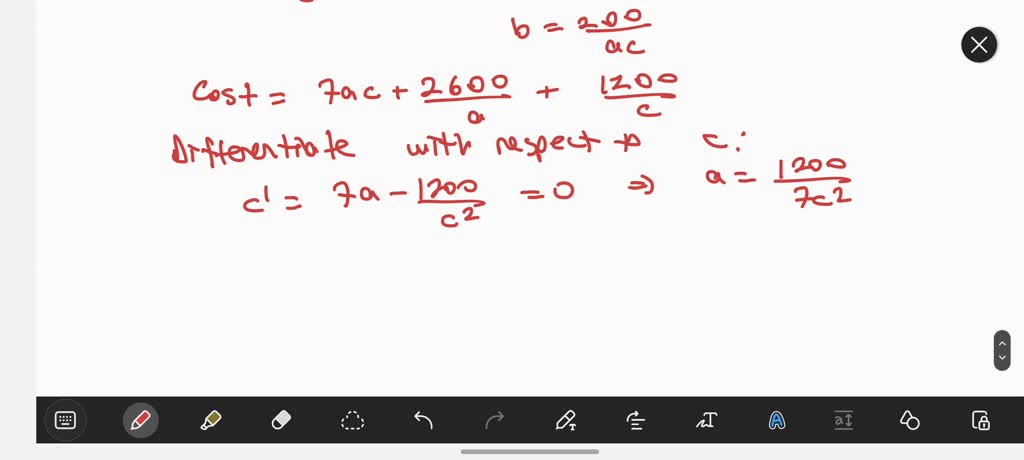 b = 200/ac
Cost = 7ac + 2600/a + 1200/c
Differentiate with respect to c:
c' = 7a - 1200/c² = 0 ⇒ a = 1200/7c²